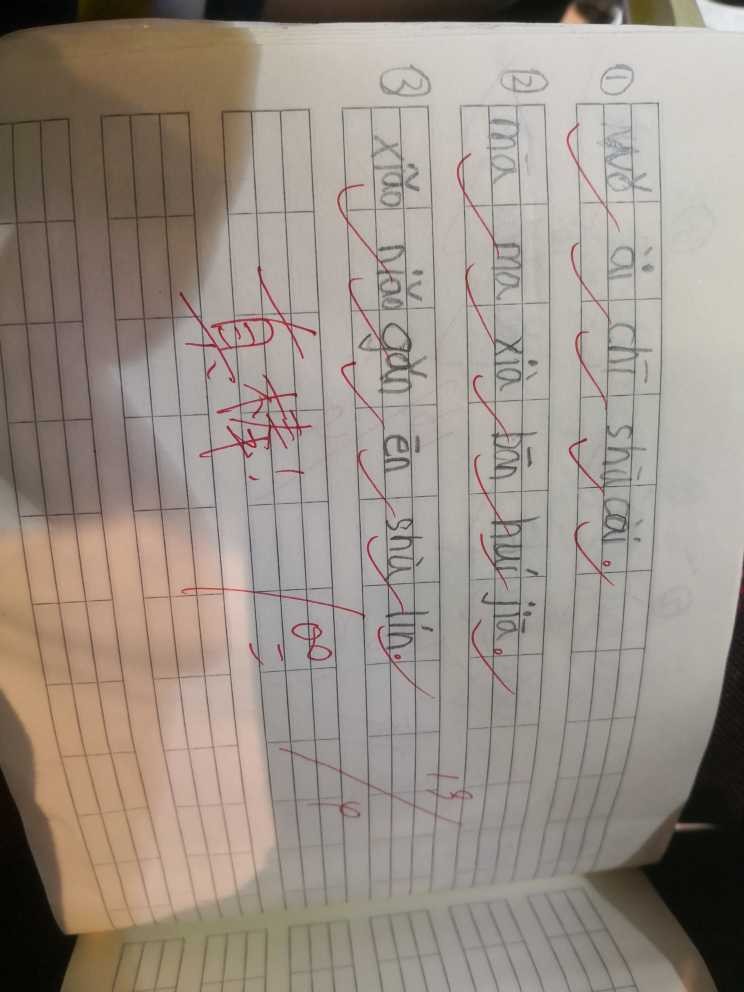 ① wǒ ài chī shū cài.
② mā ma xià bān huí jiā.
③ xiǎo niǎo gǎn ēn shù lín.
真棒!